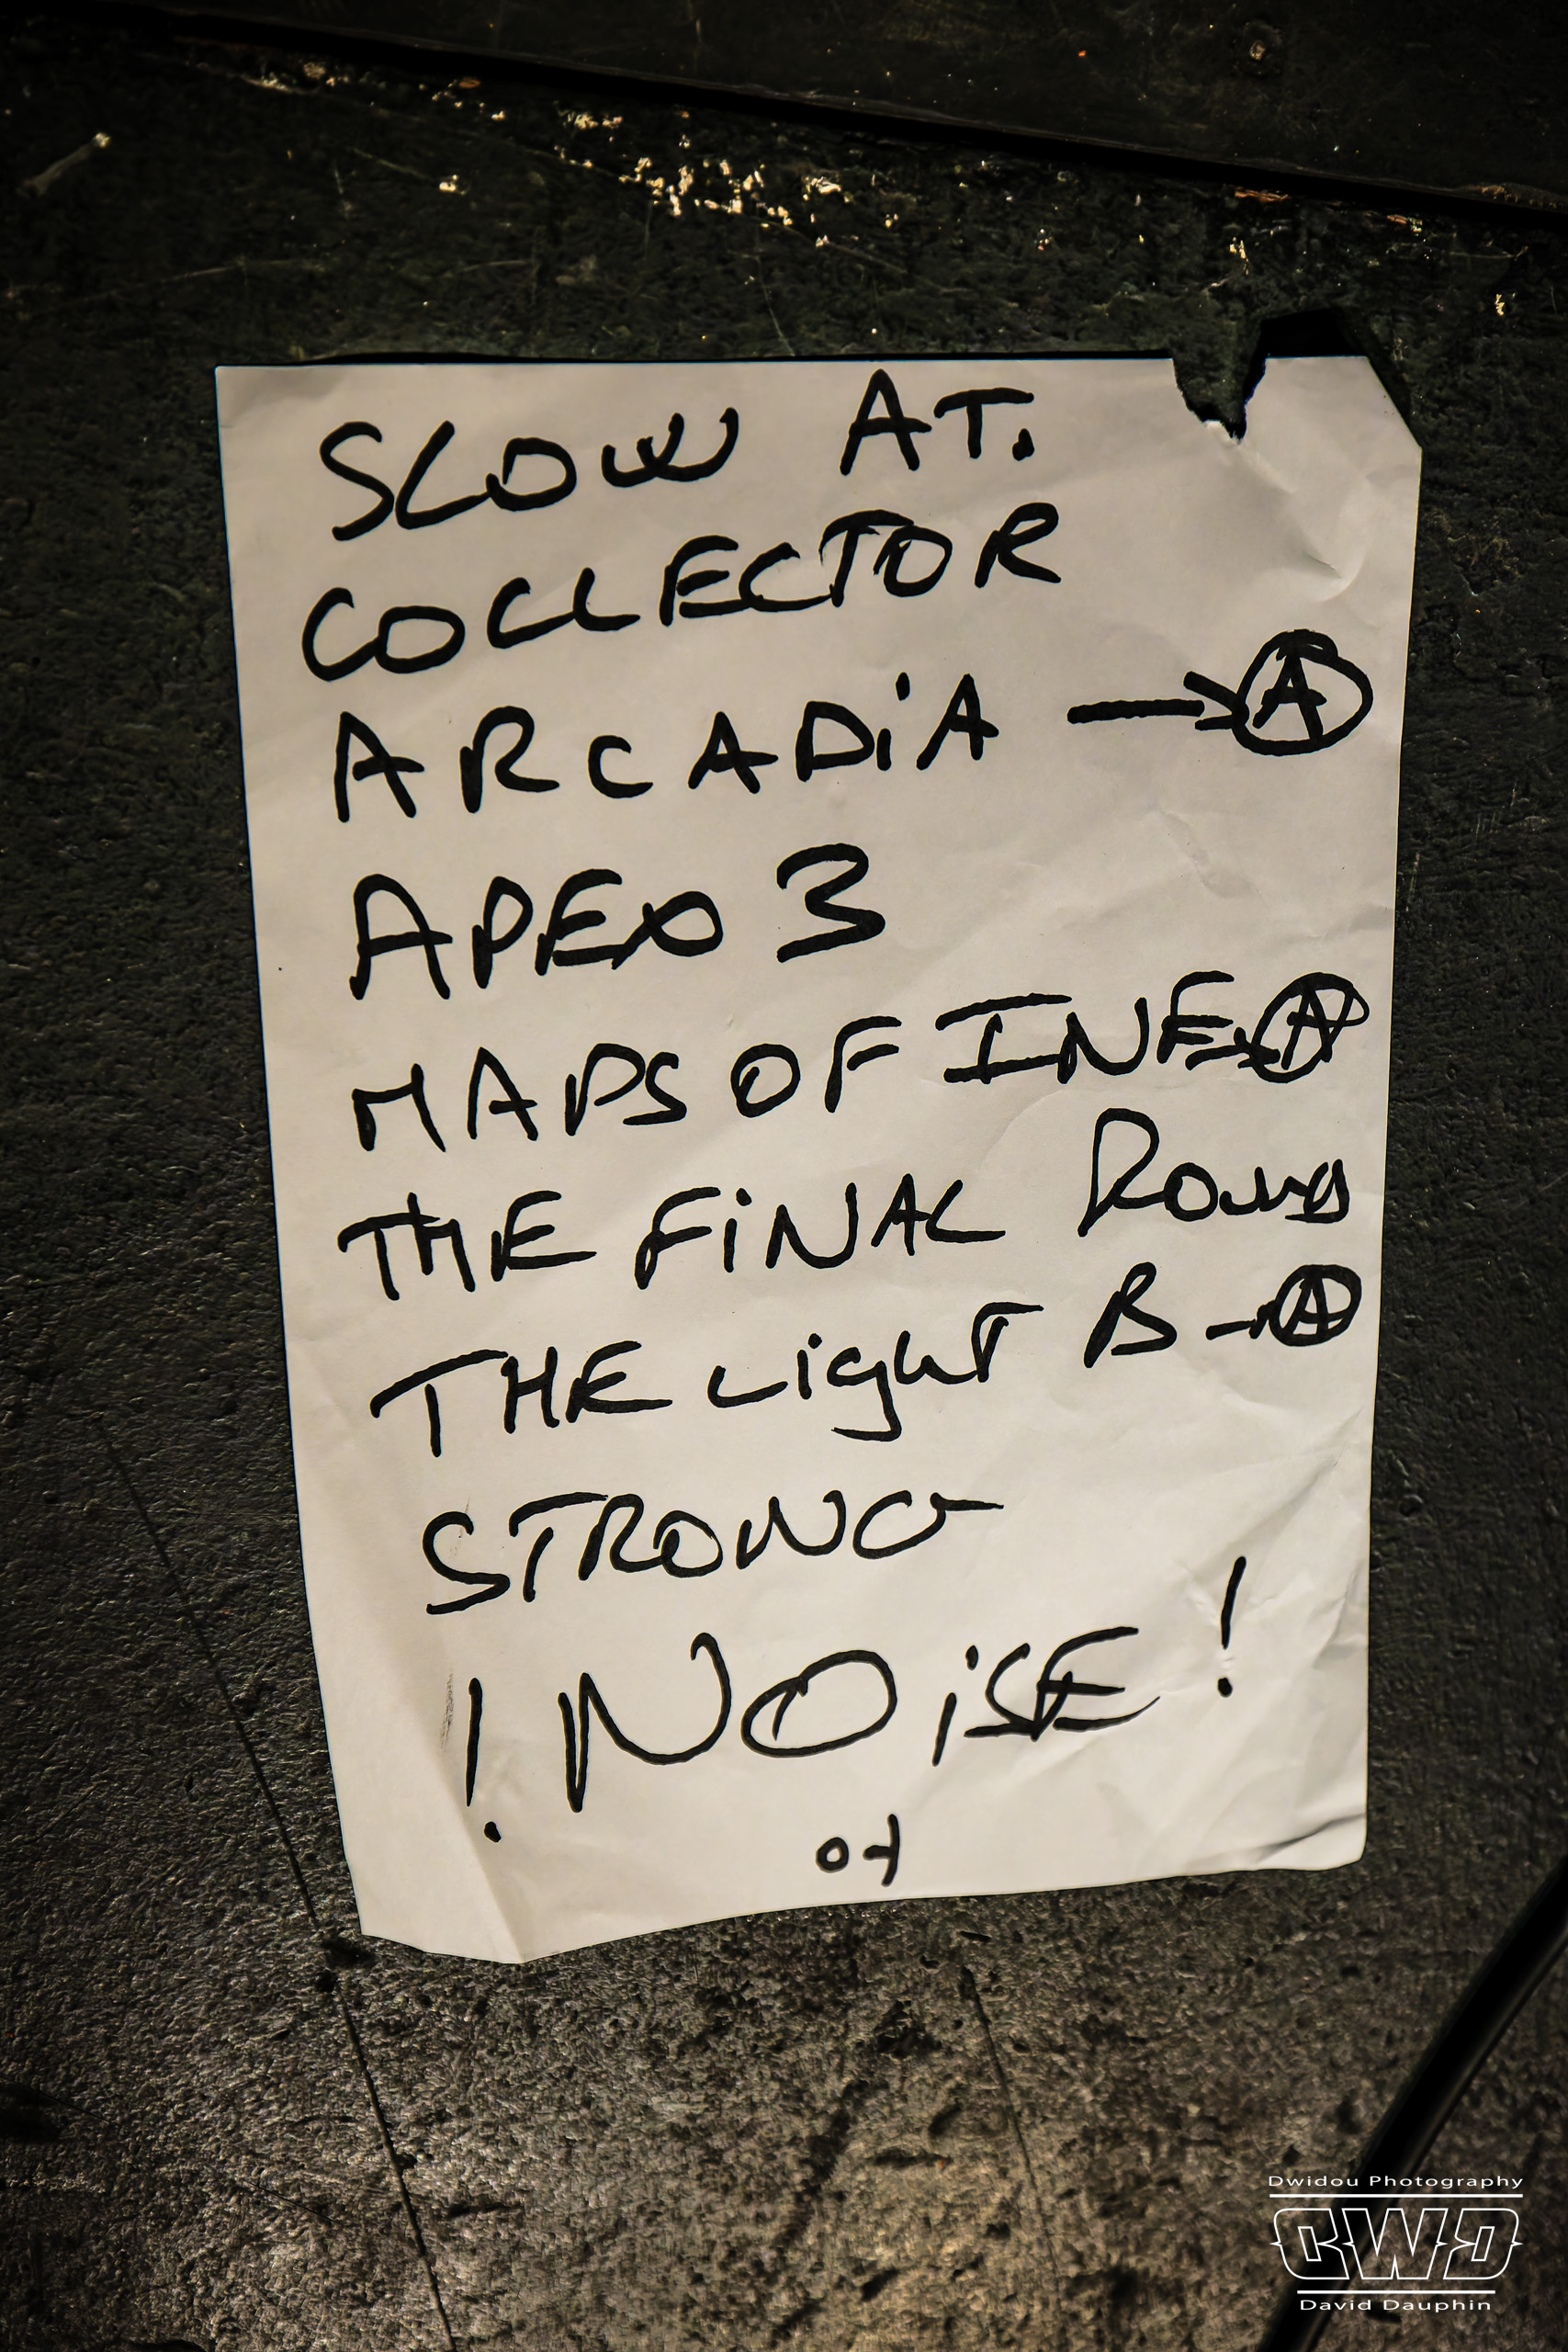 SLOW AT.
COLLECTOR
ARCADiA → Ⓐ
APEX 3
MAPS OF INF Ⓐ
THE FiNAL Round
THE LighT B → Ⓐ
STRONG
! NOiSE !
Dwidou Photography
DWD
David Dauphin